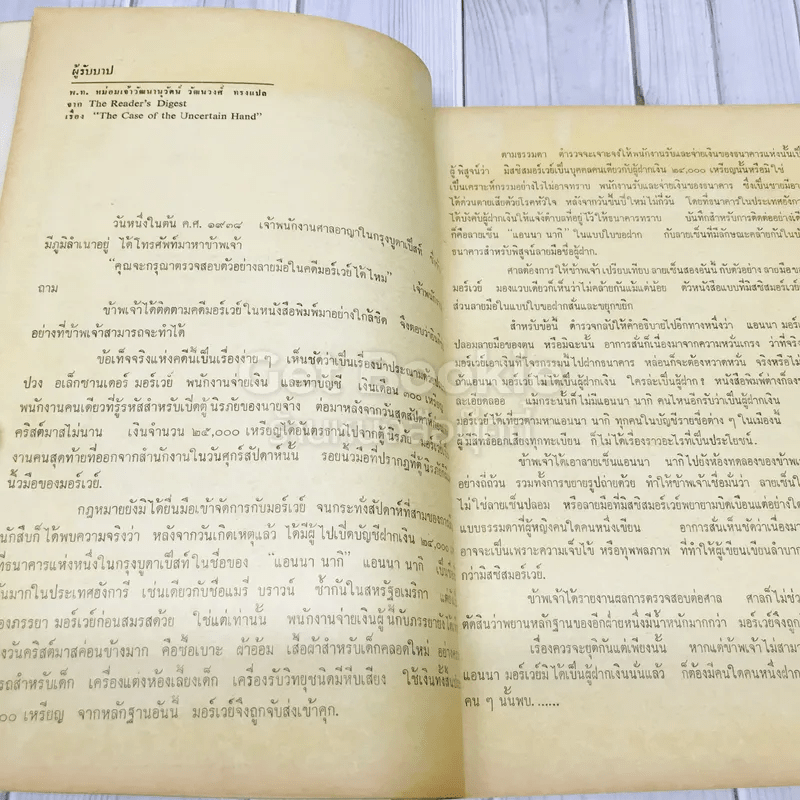 ผู้รับบาป
พ.ท. หม่อมเจ้าวัฒนานุวัตน์ วัฒนวงศ์ ทรงแปล
จาก The Reader's Digest
เรื่อง "The Case of the Uncertain Hand"
วันหนึ่งในต้น ค.ศ. ๑๙๓๘ เจ้าพนักงานศาลอาญาในกรุงบูดาเป็สท์
มีภูมิลำเนาอยู่ ได้โทรศัพท์มาหาข้าพเจ้า
"คุณจะกรุณาตรวจสอบตัวอย่างลายมือในคดีมอร์เวย์ได้ไหม"
ถาม
ข้าพเจ้าได้ติดตามคดีมอร์เวย์ในหนังสือพิมพ์มาอย่างใกล้ชิด จึงตอบว่า
อย่างที่ข้าพเจ้าสามารถจะทำได้
ข้อเท็จจริงแห่งคดีนี้เป็นเรื่องง่าย ๆ เห็นชัดว่าเป็นเรื่องน่าประณาม
ปวง อเล็กซานเดอร์ มอร์เวย์ พนักงานจ่ายเงิน และทำบัญชี เงินเดือน ๓๐๐ เหรียญ
พนักงานคนเดียวที่รู้รหัสสำหรับเปิดตู้นิรภัยของนายจ้าง ต่อมาหลังจากวันสุดสัปดาห์
คริสต์มาสไม่นาน เงินจำนวน ๒๕,๐๐๐ เหรียญได้อันตรธานไปจากตู้นิรภัย มอร์เวย์
งานคนสุดท้ายที่ออกจากสำนักงานในวันศุกร์สัปดาห์นั้น รอยนิ้วมือที่ปรากฏที่ตู้นิรภัย
นิ้วมือของมอร์เวย์.
กฎหมายยังมิได้ยื่นมือเข้าจัดการกับมอร์เวย์ จนกระทั่งสัปดาห์ที่สามของการ
นักสืบก็ได้พบความจริงว่า หลังจากวันเกิดเหตุแล้ว ได้มีผู้ไปเปิดบัญชีฝากเงิน ๒๔,๐๐๐
ที่ธนาคารแห่งหนึ่งในกรุงบูดาเป็สท์ในชื่อของ "แอนนา นากี" แอนนา นากี เป็น
กันมากในประเทศฮังการี เช่นเดียวกับชื่อแมรี่ บราวน์ ซ้ำกันในสหรัฐอเมริกา
ของภรรยา มอร์เวย์ก่อนสมรสด้วย ใช่แต่เท่านั้น พนักงานจ่ายเงินผู้นี้กับภรรยายังได้
งวันคริสต์มาสค่อนข้างมาก คือซื้อเบาะ ผ้าอ้อม เสื้อผ้าสำหรับเด็กคลอดใหม่
รถสำหรับเด็ก เครื่องแต่งห้องเลี้ยงเด็ก เครื่องรับวิทยุชนิดมีหีบเสียง ใช้เงินทั้งสิ้น
๐๐ เหรียญ จากหลักฐานอันนี้ มอร์เวย์จึงถูกจับส่งเข้าคุก.
ตามธรรมดา ตำรวจจะเจาะจงให้พนักงานรับและจ่ายเงินของธนาคารแห่งนั้นเป็น
ผู้พิสูจน์ว่า มิสซิสมอร์เวย์เป็นบุคคลคนเดียวกับผู้ฝากเงิน ๒๔,๐๐๐ เหรียญนั้นหรือมิใช่
เป็นเคราะห์กรรมอย่างไรไม่อาจทราบ พนักงานรับและจ่ายเงินของธนาคาร ซึ่งเป็นชายมีอายุ
ได้ด่วนตายเสียด้วยโรคหัวใจ หลังจากวันขึ้นปีใหม่ไม่กี่วัน โดยที่ธนาคารในประเทศฮังการี
ได้บังคับผู้ฝากเงินให้แจ้งตำบลที่อยู่ไว้ให้ธนาคารทราบ บันทึกสำหรับการติดต่ออย่างเดียว
ก็คือลายเซ็น "แอนนา นากี" ในแบบใบขอฝาก กับลายเซ็นที่มีลักษณะคล้ายกันใน
ธนาคารสำหรับพิสูจน์ลายมือชื่อผู้ฝาก.
ศาลต้องการให้ข้าพเจ้าเปรียบเทียบลายเซ็นสองอันนี้ กับตัวอย่าง ลายมือของ
มอร์เวย์ มองแวบเดียวก็เห็นว่าไม่คล้ายกันแม้แต่น้อย ตัวหนังสือแบบที่มิสซิสมอร์เวย์
ส่วนลายมือในแบบใบขอฝากสั่นและขยุกขยิก
สำหรับข้อนี้ ตำรวจกลับให้คำอธิบายไปอีกทางหนึ่งว่า แอนนา มอร์เวย์
ปลอมลายมือของตน หรือมิฉะนั้น อาการสั่นก็เนื่องมาจากความหวั่นเกรง ว่าที่จริง
มอร์เวย์เอาเงินที่โจรกรรมนี้ไปฝากธนาคาร หล่อนก็จะต้องหวาดหวั่น จริงหรือไม่
ถ้าแอนนา มอร์เวย์ไม่ได้เป็นผู้ฝากเงิน ใครล่ะเป็นผู้ฝาก? หนังสือพิมพ์ต่างก็ลง
ละเอียดลออ แม้กระนั้นก็ไม่มีแอนนา นากี คนไหนอีกรับว่าเป็นผู้ฝากเงิน
มอร์เวย์ได้เที่ยวตามหาแอนนา นากี ทุกคนในบัญชีรายชื่อต่าง ๆ ในเมืองนี้
ผู้มีสิทธิ์ออกเสียงทุกทะเบียน ก็ไม่ได้เรื่องราวอะไรที่เป็นประโยชน์.
ข้าพเจ้าได้เอาลายเซ็นแอนนา นากี ไปยังห้องทดลองของข้าพเจ้า
อย่างถี่ถ้วน รวมทั้งการขยายรูปถ่ายด้วย ทำให้ข้าพเจ้าเชื่อมั่นว่า ลายเซ็น
ไม่ใช่ลายเซ็นปลอม หรือลายมือที่มิสซิสมอร์เวย์พยายามบิดเบือนแต่อย่างใด
แบบธรรมดาที่ผู้หญิงคนใดคนหนึ่งเขียน อาการสั่นเห็นชัดว่าเนื่องมา
อาจจะเป็นเพราะความเจ็บไข้ หรือทุพพลภาพ ที่ทำให้ผู้เขียนเขียนลำบาก
กว่ามิสซิสมอร์เวย์.
ข้าพเจ้าได้รายงานผลการตรวจสอบต่อศาล ศาลก็ไม่ช่วย
ตัดสินว่าพยานหลักฐานของอีกฝ่ายหนึ่งมีน้ำหนักมากกว่า มอร์เวย์จึงถูก
เรื่องควรจะยุติกันแต่เพียงนั้น หากแต่ข้าพเจ้าไม่สามา
แอนนา มอร์เวย์มิได้เป็นผู้ฝากเงินนั้นแล้ว ก็ต้องมีคนใดคนหนึ่งฝาก
คน ๆ นั้นพบ.......